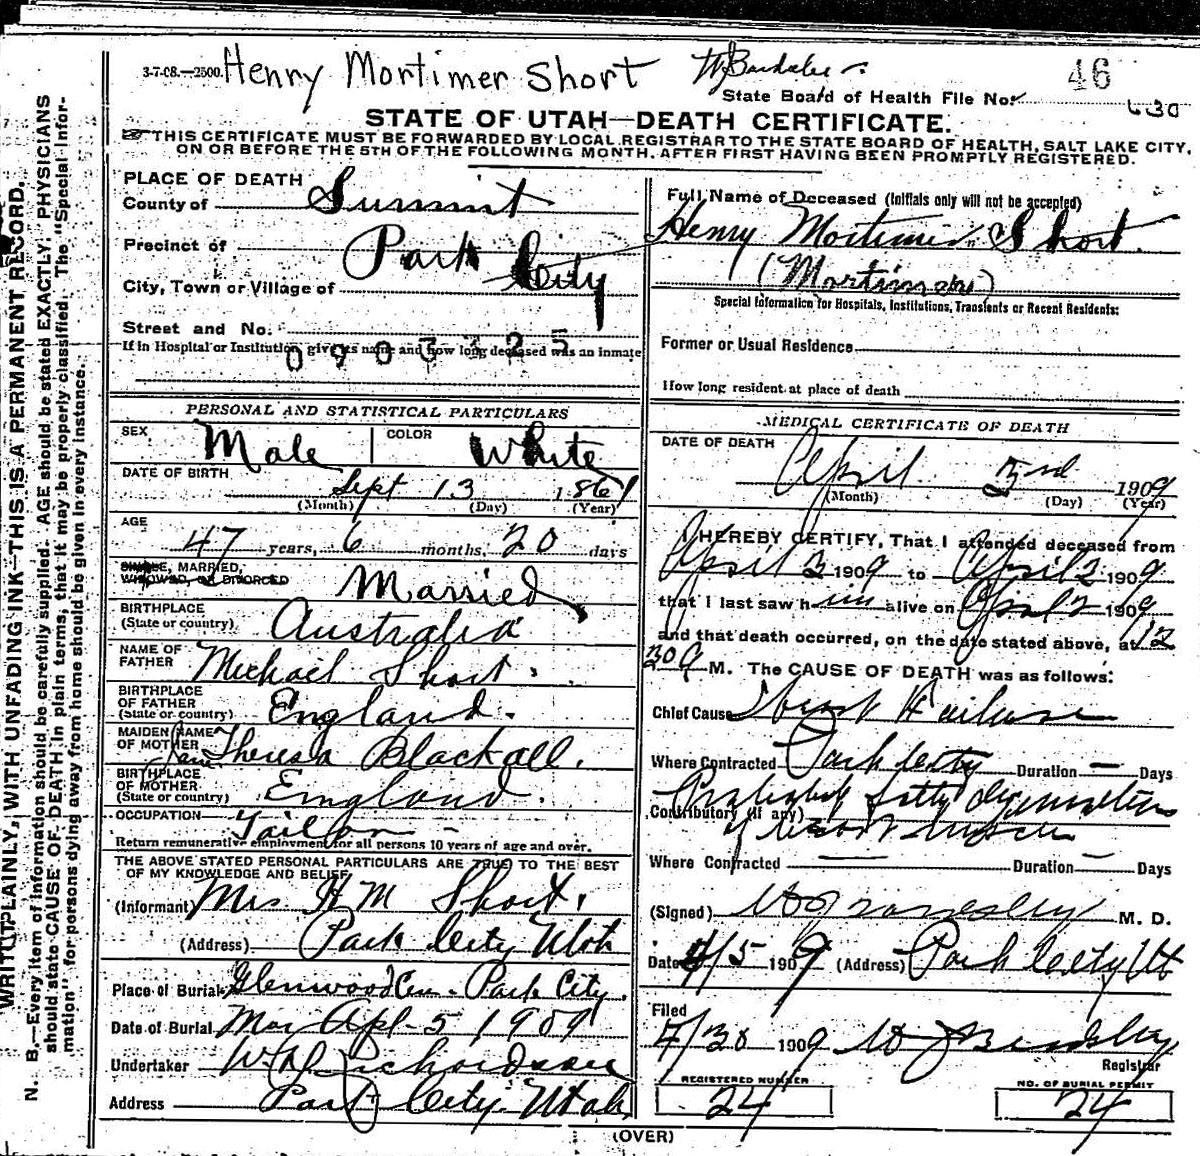 3-7-08.—2500. Henry Mortimer Short
46
State Board of Health File No. 630
STATE OF UTAH—DEATH CERTIFICATE.
THIS CERTIFICATE MUST BE FORWARDED BY LOCAL REGISTRAR TO THE STATE BOARD OF HEALTH, SALT LAKE CITY,
ON OR BEFORE THE 5TH OF THE FOLLOWING MONTH, AFTER FIRST HAVING BEEN PROMPTLY REGISTERED.
WRITE PLAINLY, WITH UNFADING INK—THIS IS A PERMANENT RECORD.
N. B.—Every item of information should be carefully supplied. AGE should be stated EXACTLY. PHYSICIANS
should state CAUSE OF DEATH in plain terms, that it may be properly classified. The "Special Infor-
mation" for persons dying away from home should be given in every instance.
PLACE OF DEATH
County of Summit
Precinct of Park City
City, Town or Village of
Street and No.
If in Hospital or Institution, give its name and how long deceased was an inmate
PERSONAL AND STATISTICAL PARTICULARS
SEX Male COLOR White
DATE OF BIRTH Sept 13 1861
(Month) (Day) (Year)
AGE 47 years, 6 months, 20 days
SINGLE, MARRIED,
WIDOWED, OR DIVORCED Married
BIRTHPLACE
(State or country) Australia
NAME OF
FATHER Michael Short
BIRTHPLACE
OF FATHER
(State or country) England.
MAIDEN NAME
OF MOTHER Jane Theresa Blackall.
BIRTHPLACE
OF MOTHER
(State or country) England.
OCCUPATION Tailor
Return remunerative employment for all persons 10 years of age and over.
THE ABOVE STATED PERSONAL PARTICULARS ARE TRUE TO THE BEST
OF MY KNOWLEDGE AND BELIEF
(Informant) Mrs H M Short,
(Address) Park City Utah
Place of Burial Glenwood Cem. Park City.
Date of Burial Apl 5 1909
Undertaker W H Richardson
Address Park City Utah
Full Name of Deceased (Initials only will not be accepted)
Henry Mortimer Short.
Special Information for Hospitals, Institutions, Transients or Recent Residents:
Former or Usual Residence
How long resident at place of death
MEDICAL CERTIFICATE OF DEATH
DATE OF DEATH April 3rd 1909
(Month) (Day) (Year)
I HEREBY CERTIFY, That I attended deceased from
April 2 1909 to April 2 1909
that I last saw him alive on April 2 1909
and that death occurred, on the date stated above, at 12
30 a M. The CAUSE OF DEATH was as follows:
Chief Cause Heart Failure
Where Contracted Park City Duration — Days
Contributory (if any) Probably fatty degeneration
of heart muscle
Where Contracted — Duration — Days
(Signed) M. D.
Date 4/5 1909 (Address) Park City Ut
Filed
4/30 1909 W J Bardsley
Registrar
REGISTERED NUMBER
24
NO. OF BURIAL PERMIT
24
(OVER)